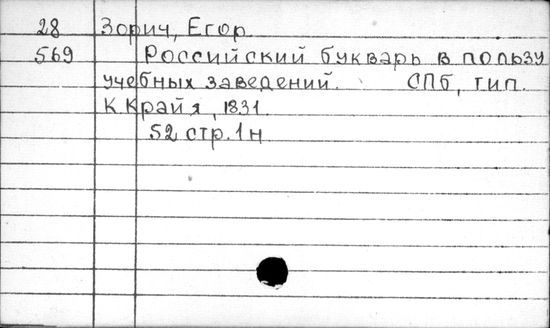 28 Зорич, Егор
569 Российский букварь в пользу
учебных заведений. СПб, тип.
К. Крайя, 1831.
52 стр. 1 н